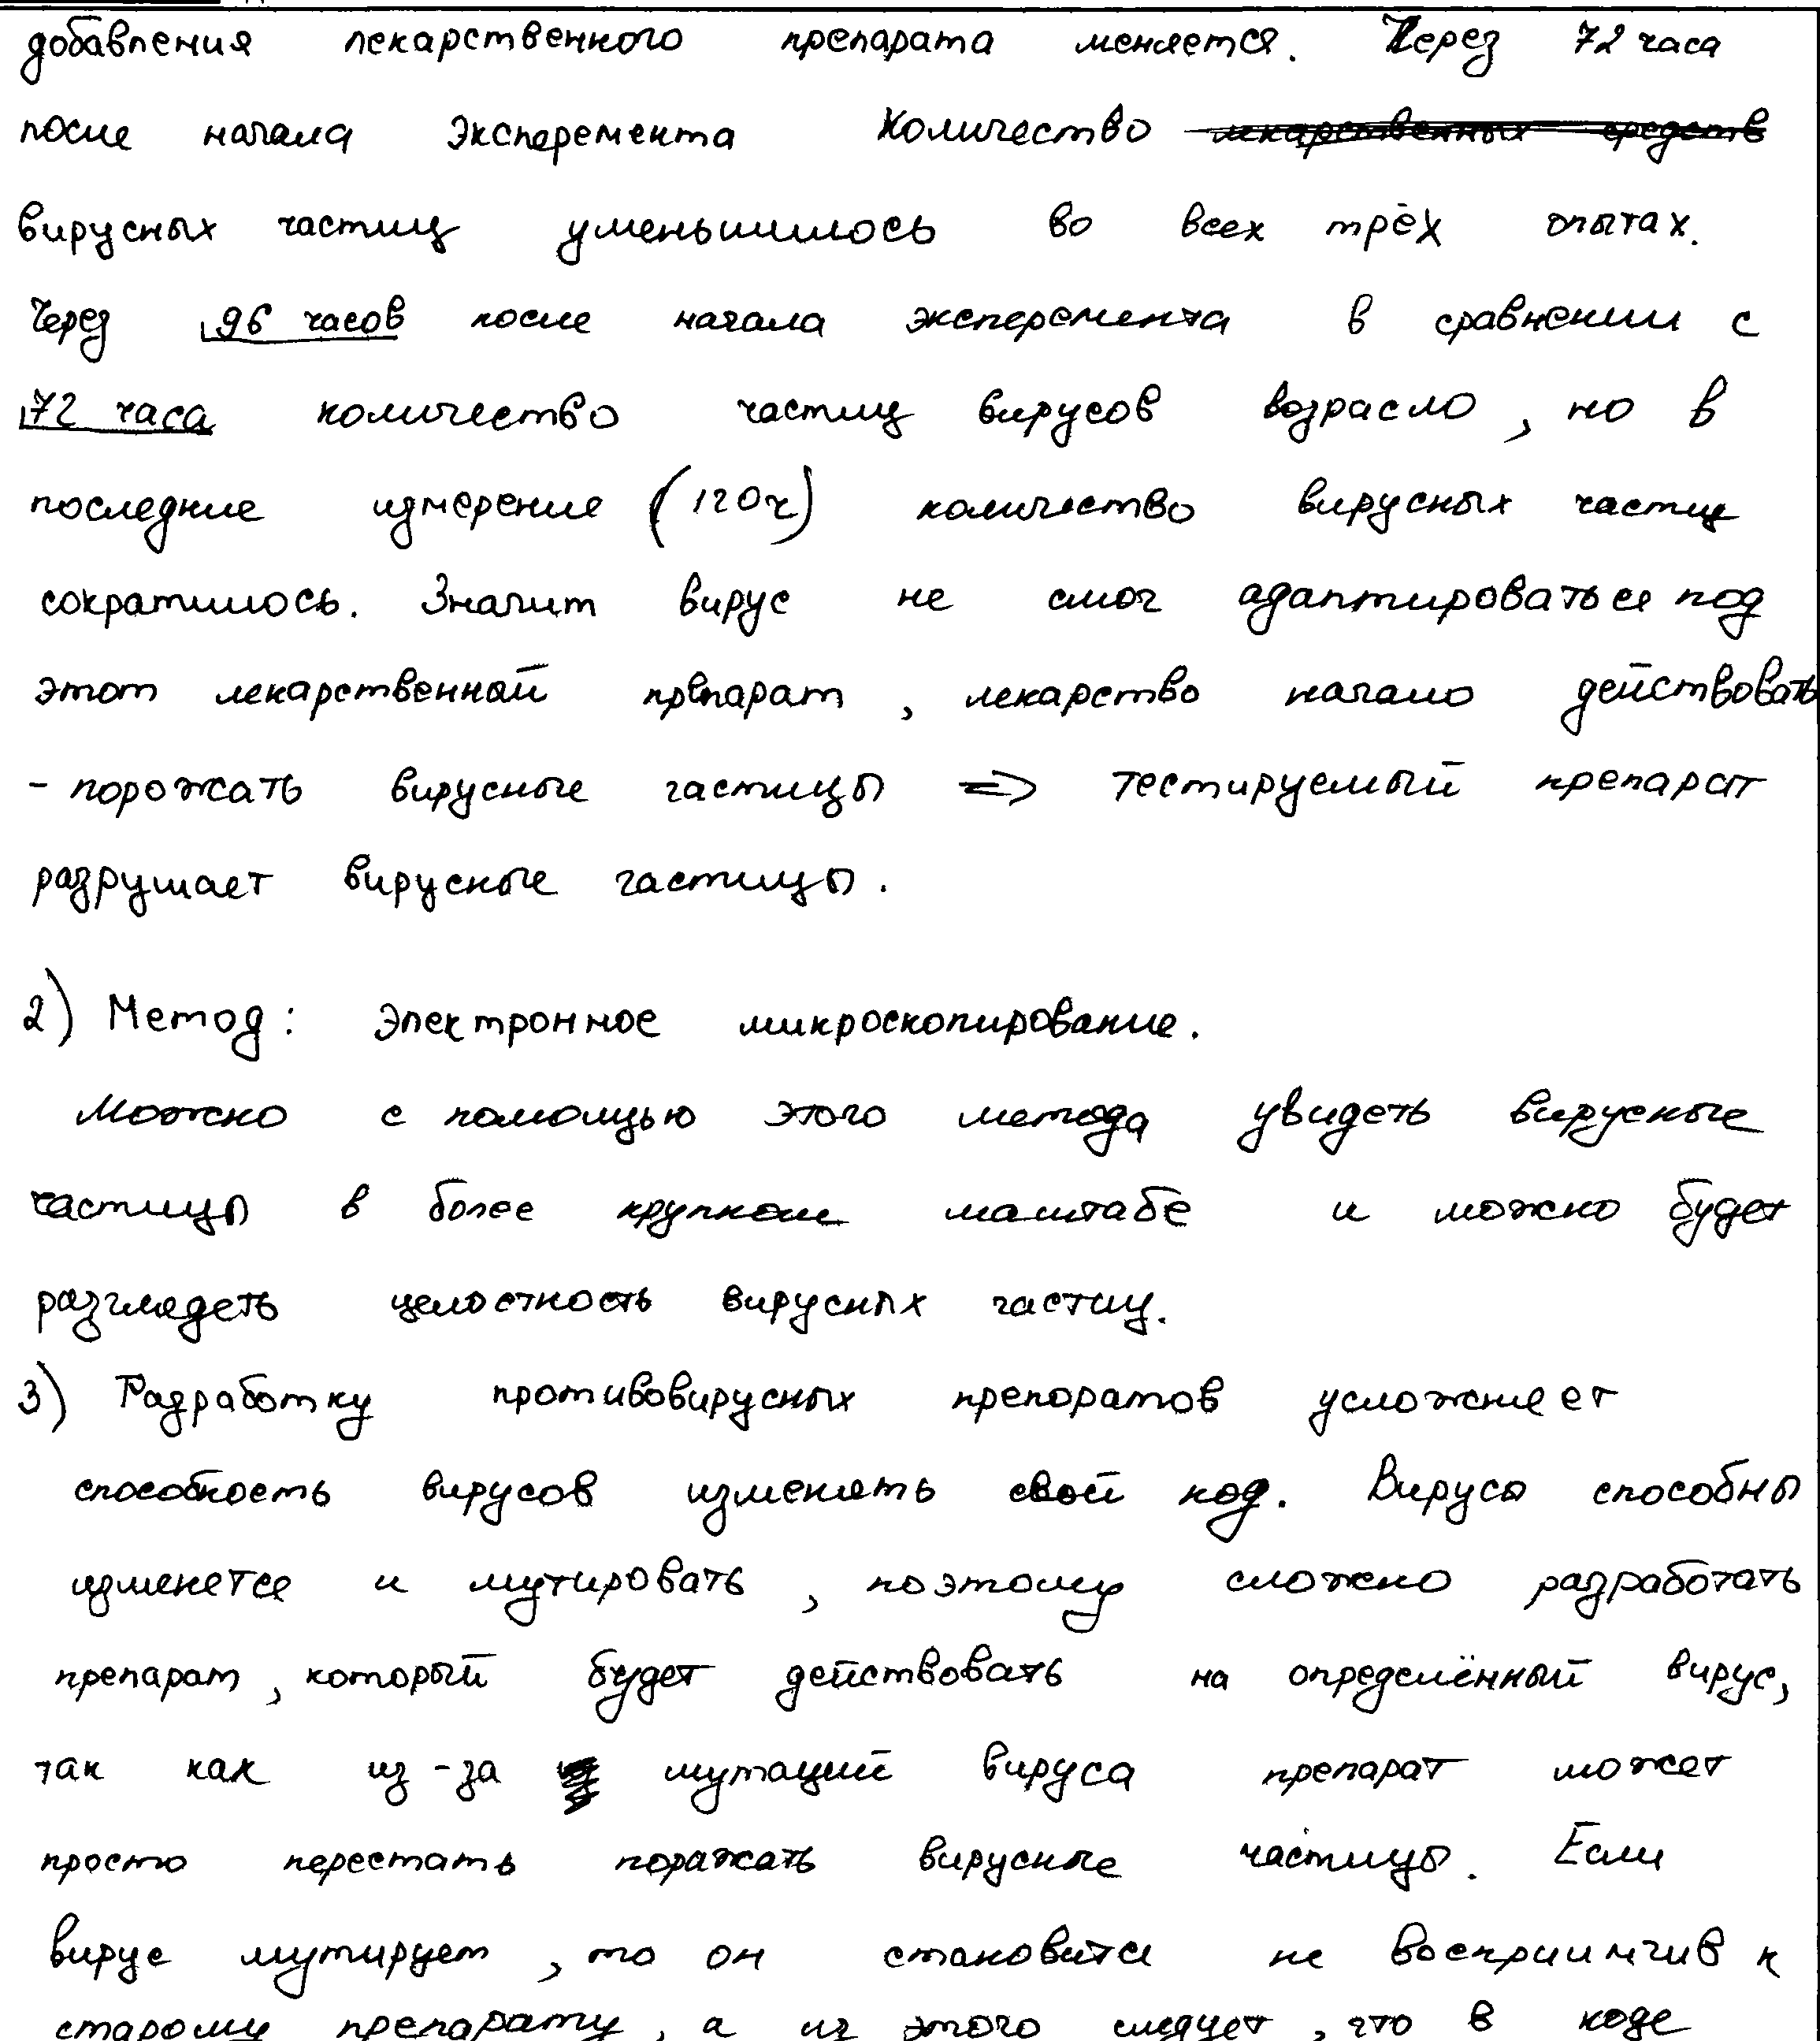 добавления лекарственного препарата меняется. Через 72 часа
после начала эксперемента количество ~~лекарственных средств~~
вирусных частиц уменьшилось во всех трёх опытах.
Через 96 часов после начала эксперемента в сравнении с
72 часа количество частиц вирусов возрасло, но в
последние измерение (120ч) количество вирусных частиц
сократилось. Значит вирус не смог адаптироваться под
этот лекарственный препарат, лекарство начало действовать
- порожать вирусные частицы => тестируемый препарат
разрушает вирусные частицы.
2) Метод: Электронное микроскопирование.
Можно с помощью этого метода увидеть вирусные
частицы в более крупном маштабе и можно будет
разглядеть целостность вирусных частиц.
3) Разработку противовирусных препоратов усложняет
способность вирусов изменять свой код. Вирусы способны
изменятся и мутировать, поэтому сложно разработать
препарат, который будет действовать на определённый вирус,
так как из-за мутаций вируса препарат может
просто перестать поражать вирусные частицы. Если
вирус мутирует, то он становится не восприимчив к
старому препарату, а из этого следует, что в коде